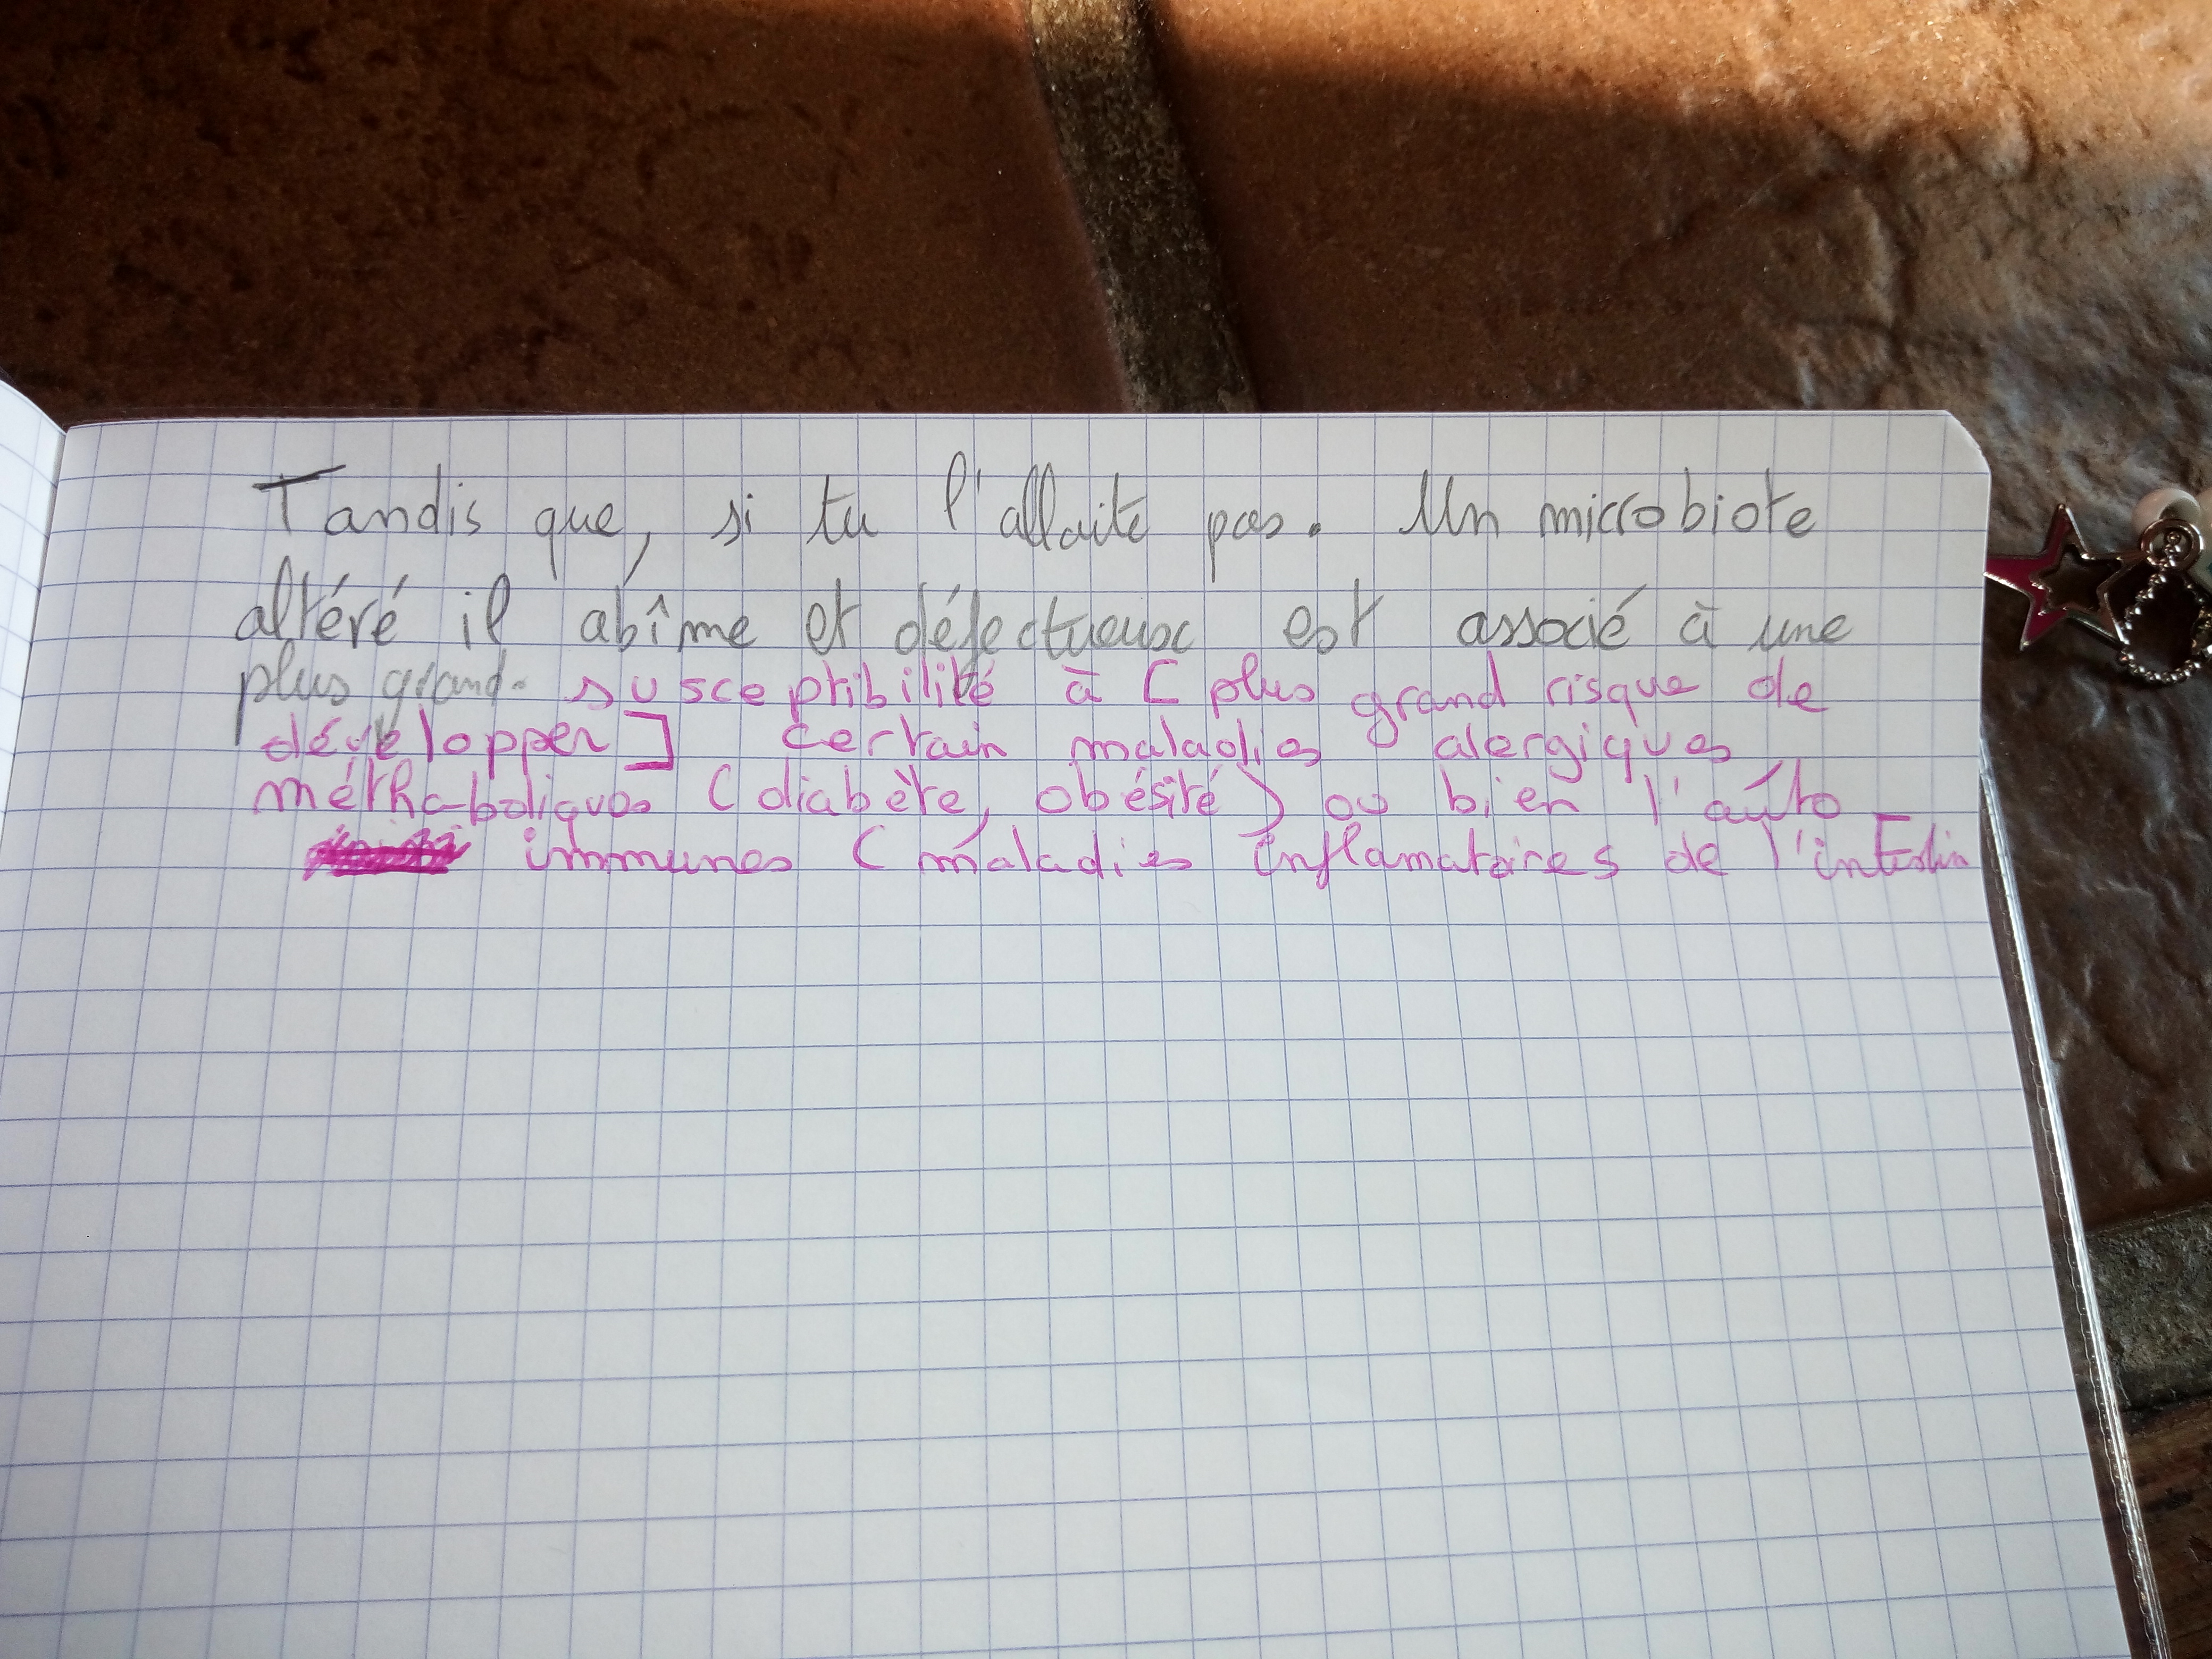 Tandis que, si tu l'allaite pas. Un microbiote
altéré il abîme et défectueux est associé à une
plus grand. susceptibilité à [ plus grand risque de
développer ] certain maladies alergiques
méthaboliques ( diabète, obésité ) ou bien l'auto
immunes ( maladies inflamatoires de l'intestin